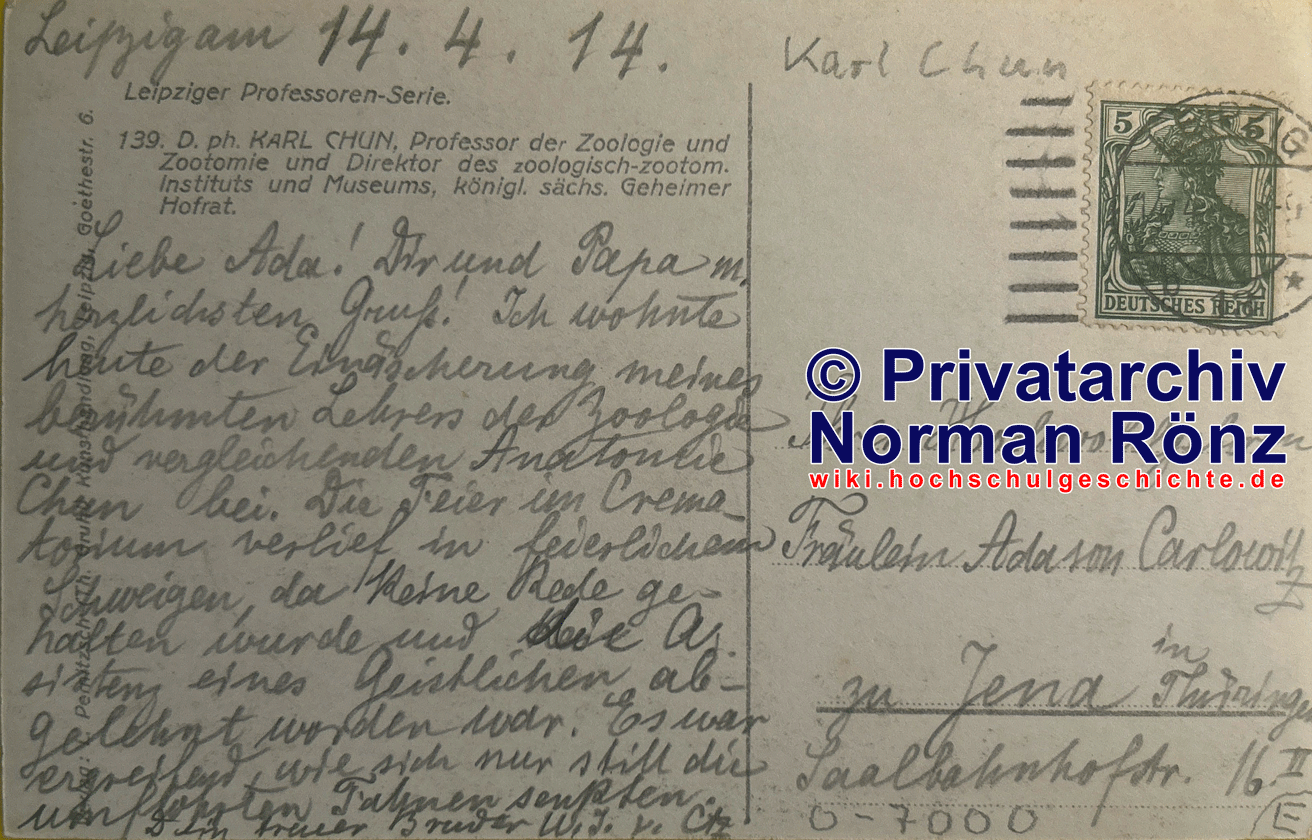 Leipzig am 14. 4. 14.
Leipziger Professoren-Serie.
139. D. ph. KARL CHUN, Professor der Zoologie und
Zootomie und Direktor des zoologisch-zootom.
Instituts und Museums, königl. sächs. Geheimer
Hofrat.
Liebe Ada! Dir und Papa m.
herzlichsten Gruß! Ich wohnte
heute der Einäscherung meines
berühmten Lehrers der Zoologie
und vergleichenden Anatomie
Chun bei. Die Feier im Crema-
torium verlief in feierlichem
Schweigen, da keine Rede ge-
halten wurde und die As-
sistenz eines Geistlichen ab-
gelehnt worden war. Es war
ergreifend, wie sich nur still die
umflorten Fahnen senkten.
Dein treuer Bruder W. J. v. Ctz
Verlag: Pernitzsch (Th. Gruhl) Kunsthandlung, Leipzig, Goethestr. 6.
Karl Chun
5 5
DEUTSCHES REICH
© Privatarchiv
Norman Rönz
wiki.hochschulgeschichte.de
Fräulein Ada von Carlowitz
in
zu Jena Thüringen
Saalbahnhofstr. 16. II
0-7000
E